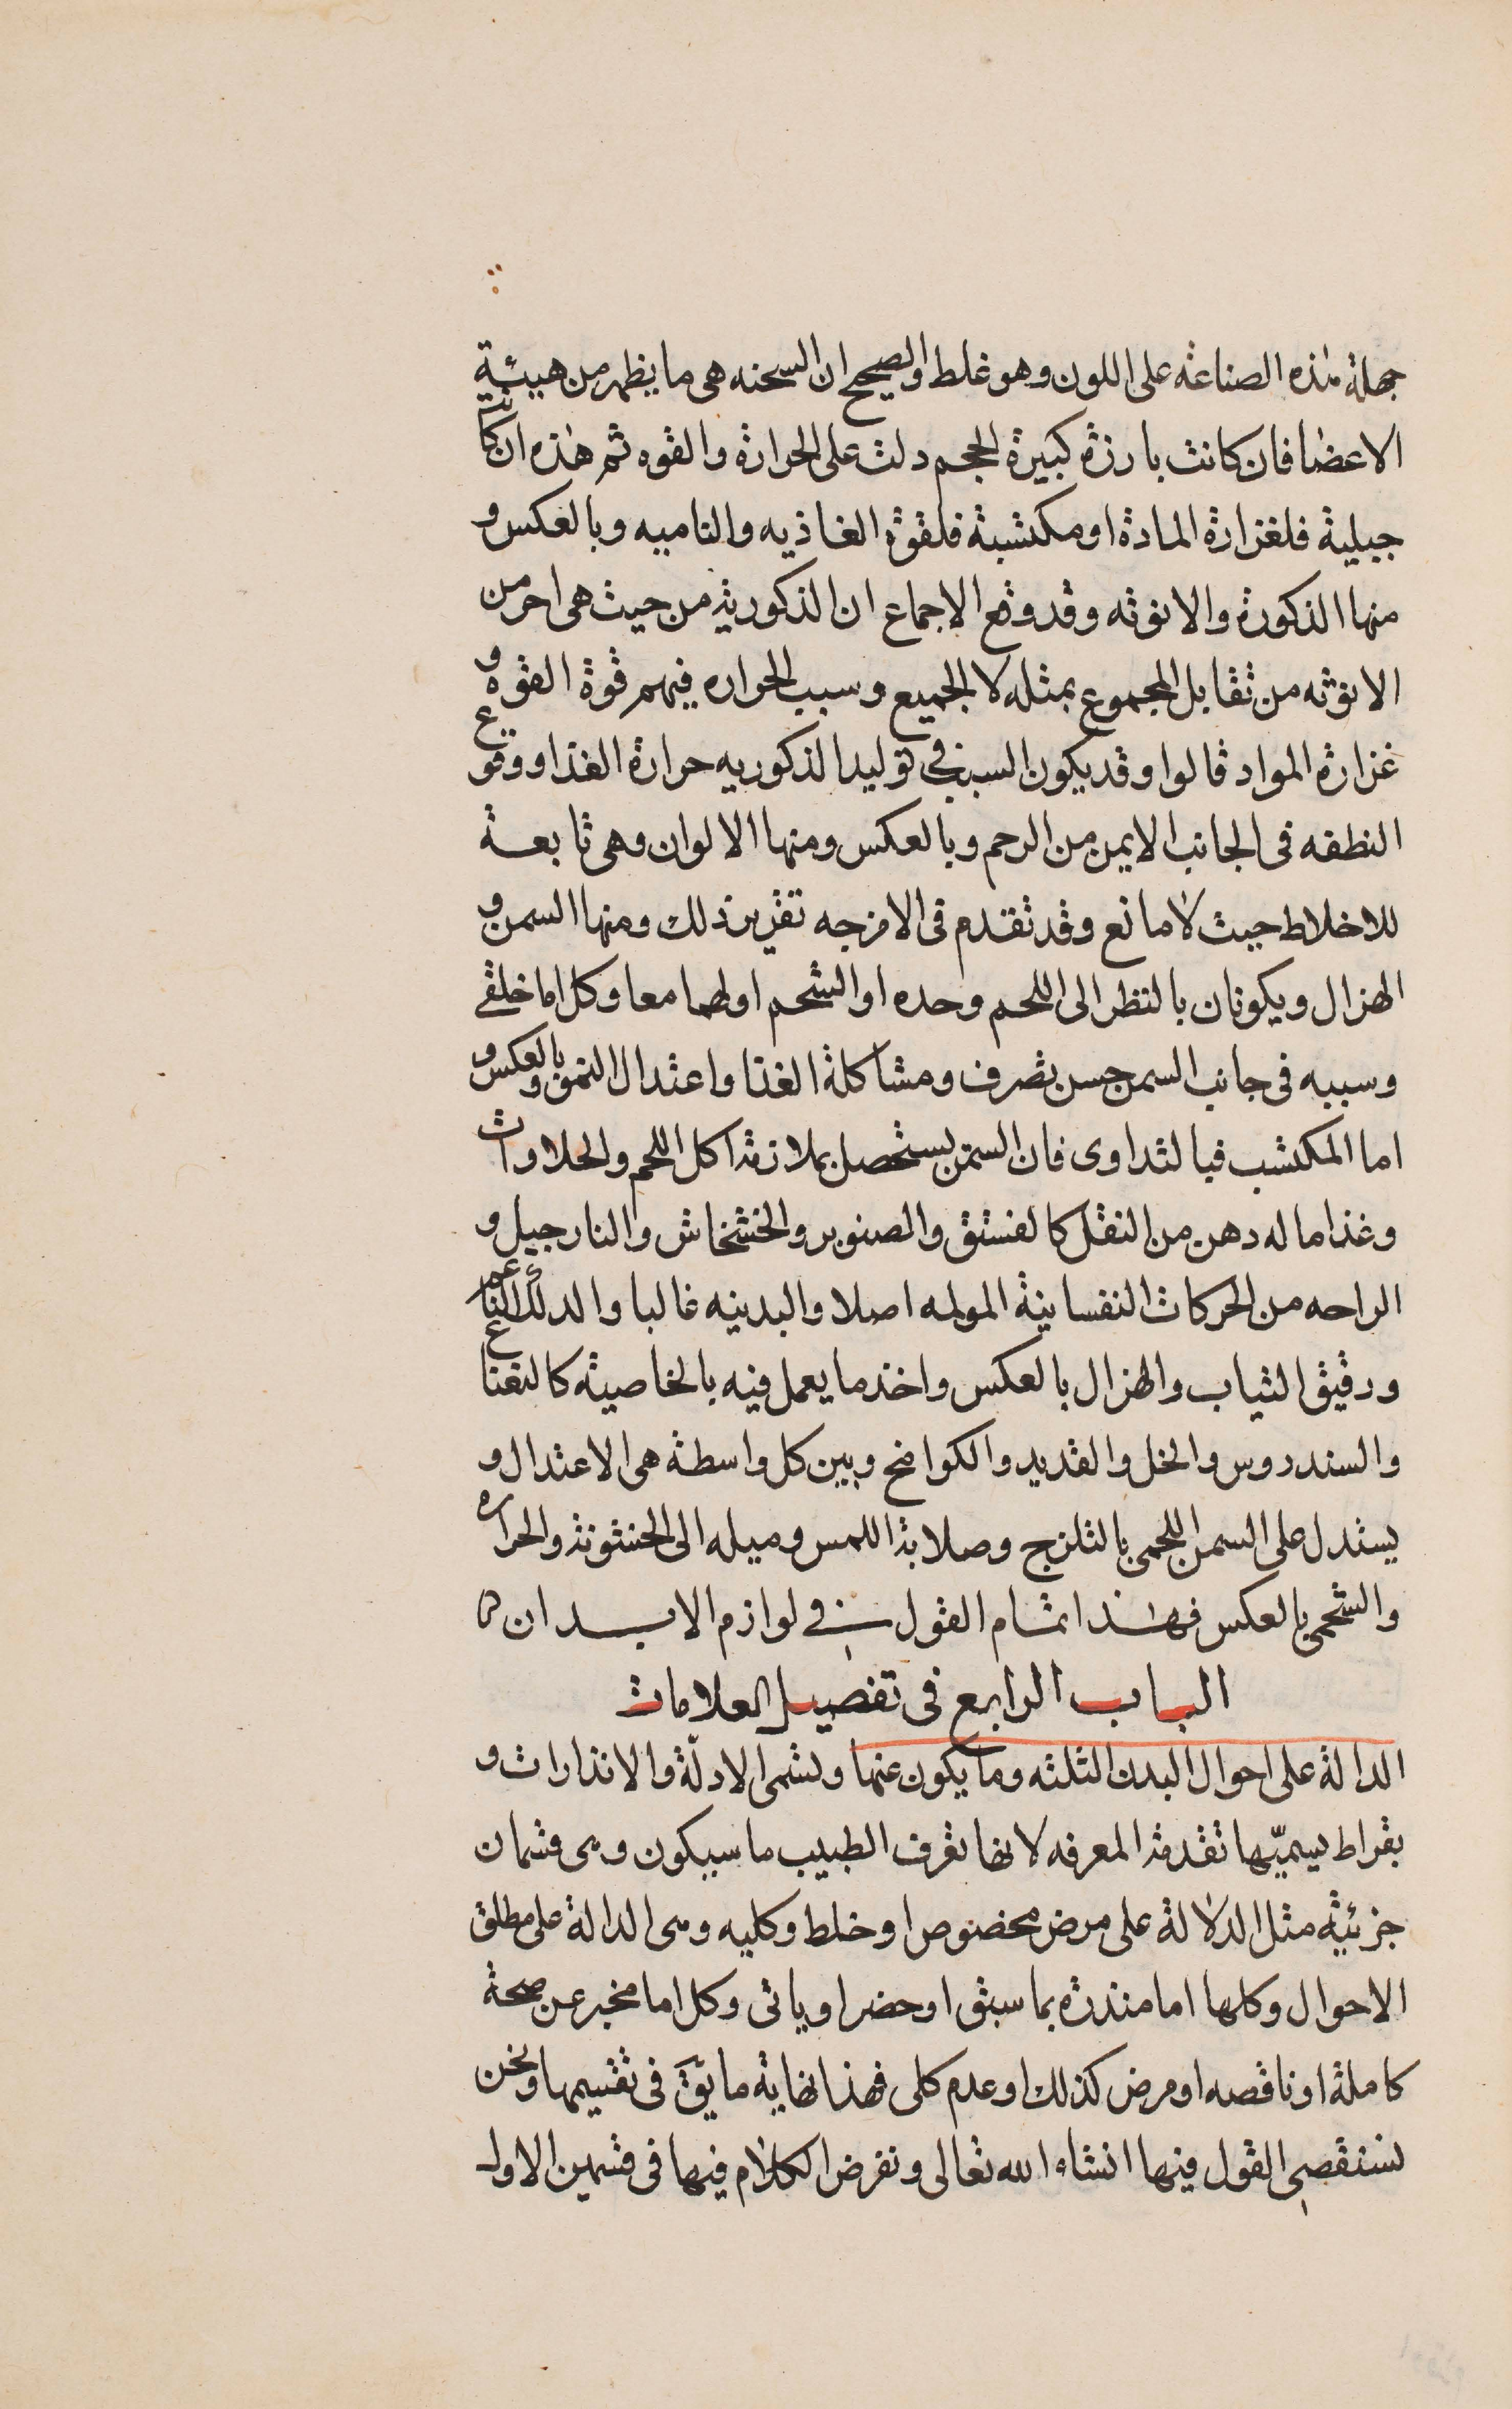 جهلة هذه الصناعة على اللون وهو غلط والصحيح ان السحنه هى ما يظهر من هيئة
الاعضا فان كانت بارزة كبيرة الحجم دلت على الحرارة والقوه ثم هذه ان كانت
جبلية فلغزارة المادة او مكتسبة فلقوة الغاذيه والناميه وبالعكس و
منها الذكورة والانوثه وقد وقع الاجماع ان الذكورية من حيث هى احر من
الانوثه من تقابل المجموع بمثله لا الجميع وسبب الحراره فيهم قوة القوه و
غزارة المواد قالوا وقد يكون السبب فى توليد الذكوريه حرارة الغذا ووقوع
النطفه فى الجانب الايمن من الرحم وبالعكس ومنها الالوان وهى تابعة
للاخلاط حيث لا مانع وقد تقدم فى الامزجه تقرير ذلك ومنها السمن و
الهزال ويكونان بالنظر الى اللحم وحده او الشحم او لهما معا وكل اما خلقى
وسببه فى جانب السمن حسن تصرف ومشاكلة الغذا واعتدال النمو وبالعكس و
اما المكتسب فبالتداوى فان السمن يستحصل بملازمة اكل اللحم والحلاوات
وغذا ما له دهن من النقل كالفستق والصنوبر والخشخاش والنارجيل و
الراحه من الحركات النفسانية المولمه اصلا والبدنيه غالبا والدلك الناعم
ورقيق الثياب والهزال بالعكس واخذ ما يعمل فيه بالخاصية كالنعناع
والسندروس والخل والقديد والكوامخ وبين كل واسطة هى الاعتدال و
يستدل على السمن اللحمى بالتلزج وصلابة اللمس وميله الى الخشونة والحراره
والشحمى بالعكس فهذا تمام القول فى لوازم الابدان
الباب الرابع فى تفصيل العلامات
الدالة على احوال البدن الثلثه وما يكون عنها وتسمى الادلّة والانذارات و
بقراط يسميّها تقدمة المعرفه لانها تعرف الطبيب ما سيكون وهى قسمان
جزئية مثل الدلالة على مرض مخصوص او خلط وكليه وهى الدالة على مطلق
الاحوال وكلها اما منذرة بما سبق او حضر او ياتى وكل اما مخبر عن صحة
كاملة او ناقصه او مرض كذلك او عدم كلى فهذا نهاية ما يقَ فى تقسيمها ونحن
نستقصى القول فيها انشاء الله تعالى ونفرض الكلام فيها فى قسمين الاول